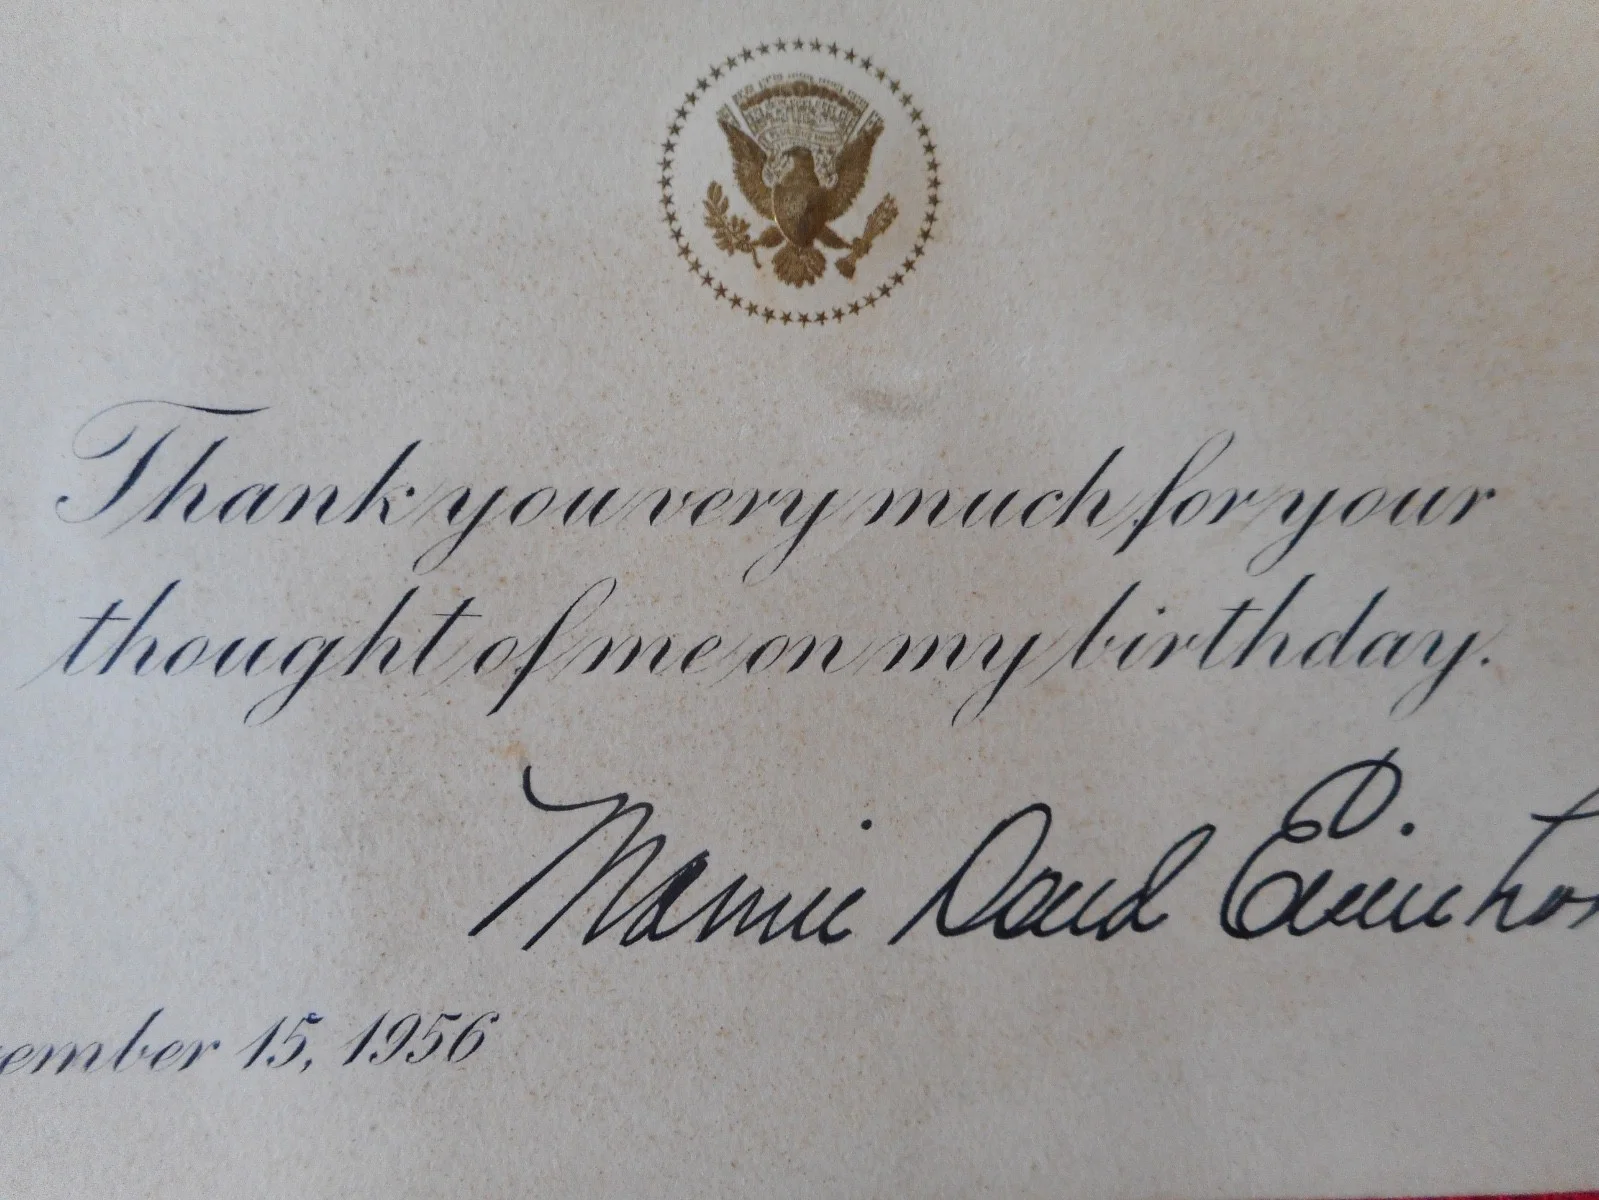 Thank you very much for your
thought of me on my birthday.
Mamie Doud Eisenho
ember 15, 1956